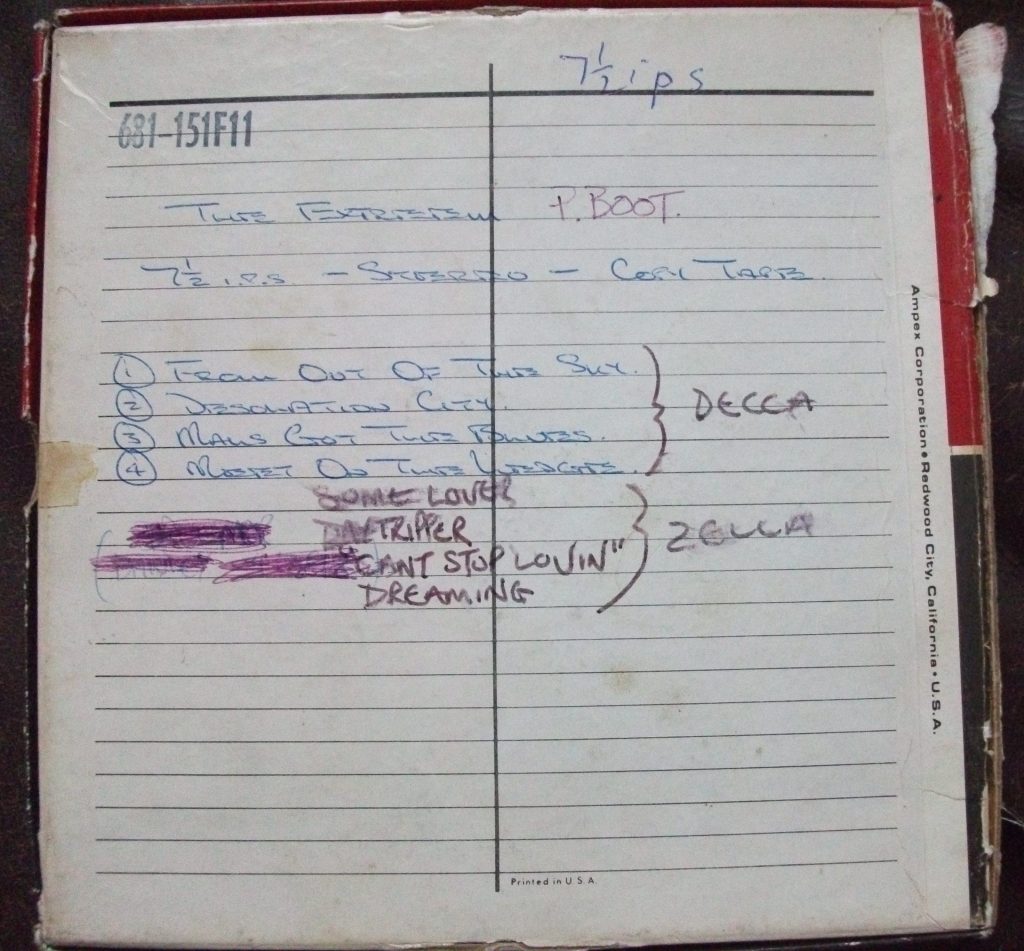 7½ ips
681-151F11
THE EXTREEM P. BOOT.
7½ I.P.S. - STEREO - COPY TAPE.
① FROM OUT OF THE SKY.
② DESOLATION CITY.
DECCA
③ MANS GOT THE BLUES.
④ ON THE
SOME LOVER
DAYTRIPPER
ZELLA
"CANT STOP LOVIN"
DREAMING
Printed in U.S.A.
Ampex Corporation • Redwood City, California • U.S.A.